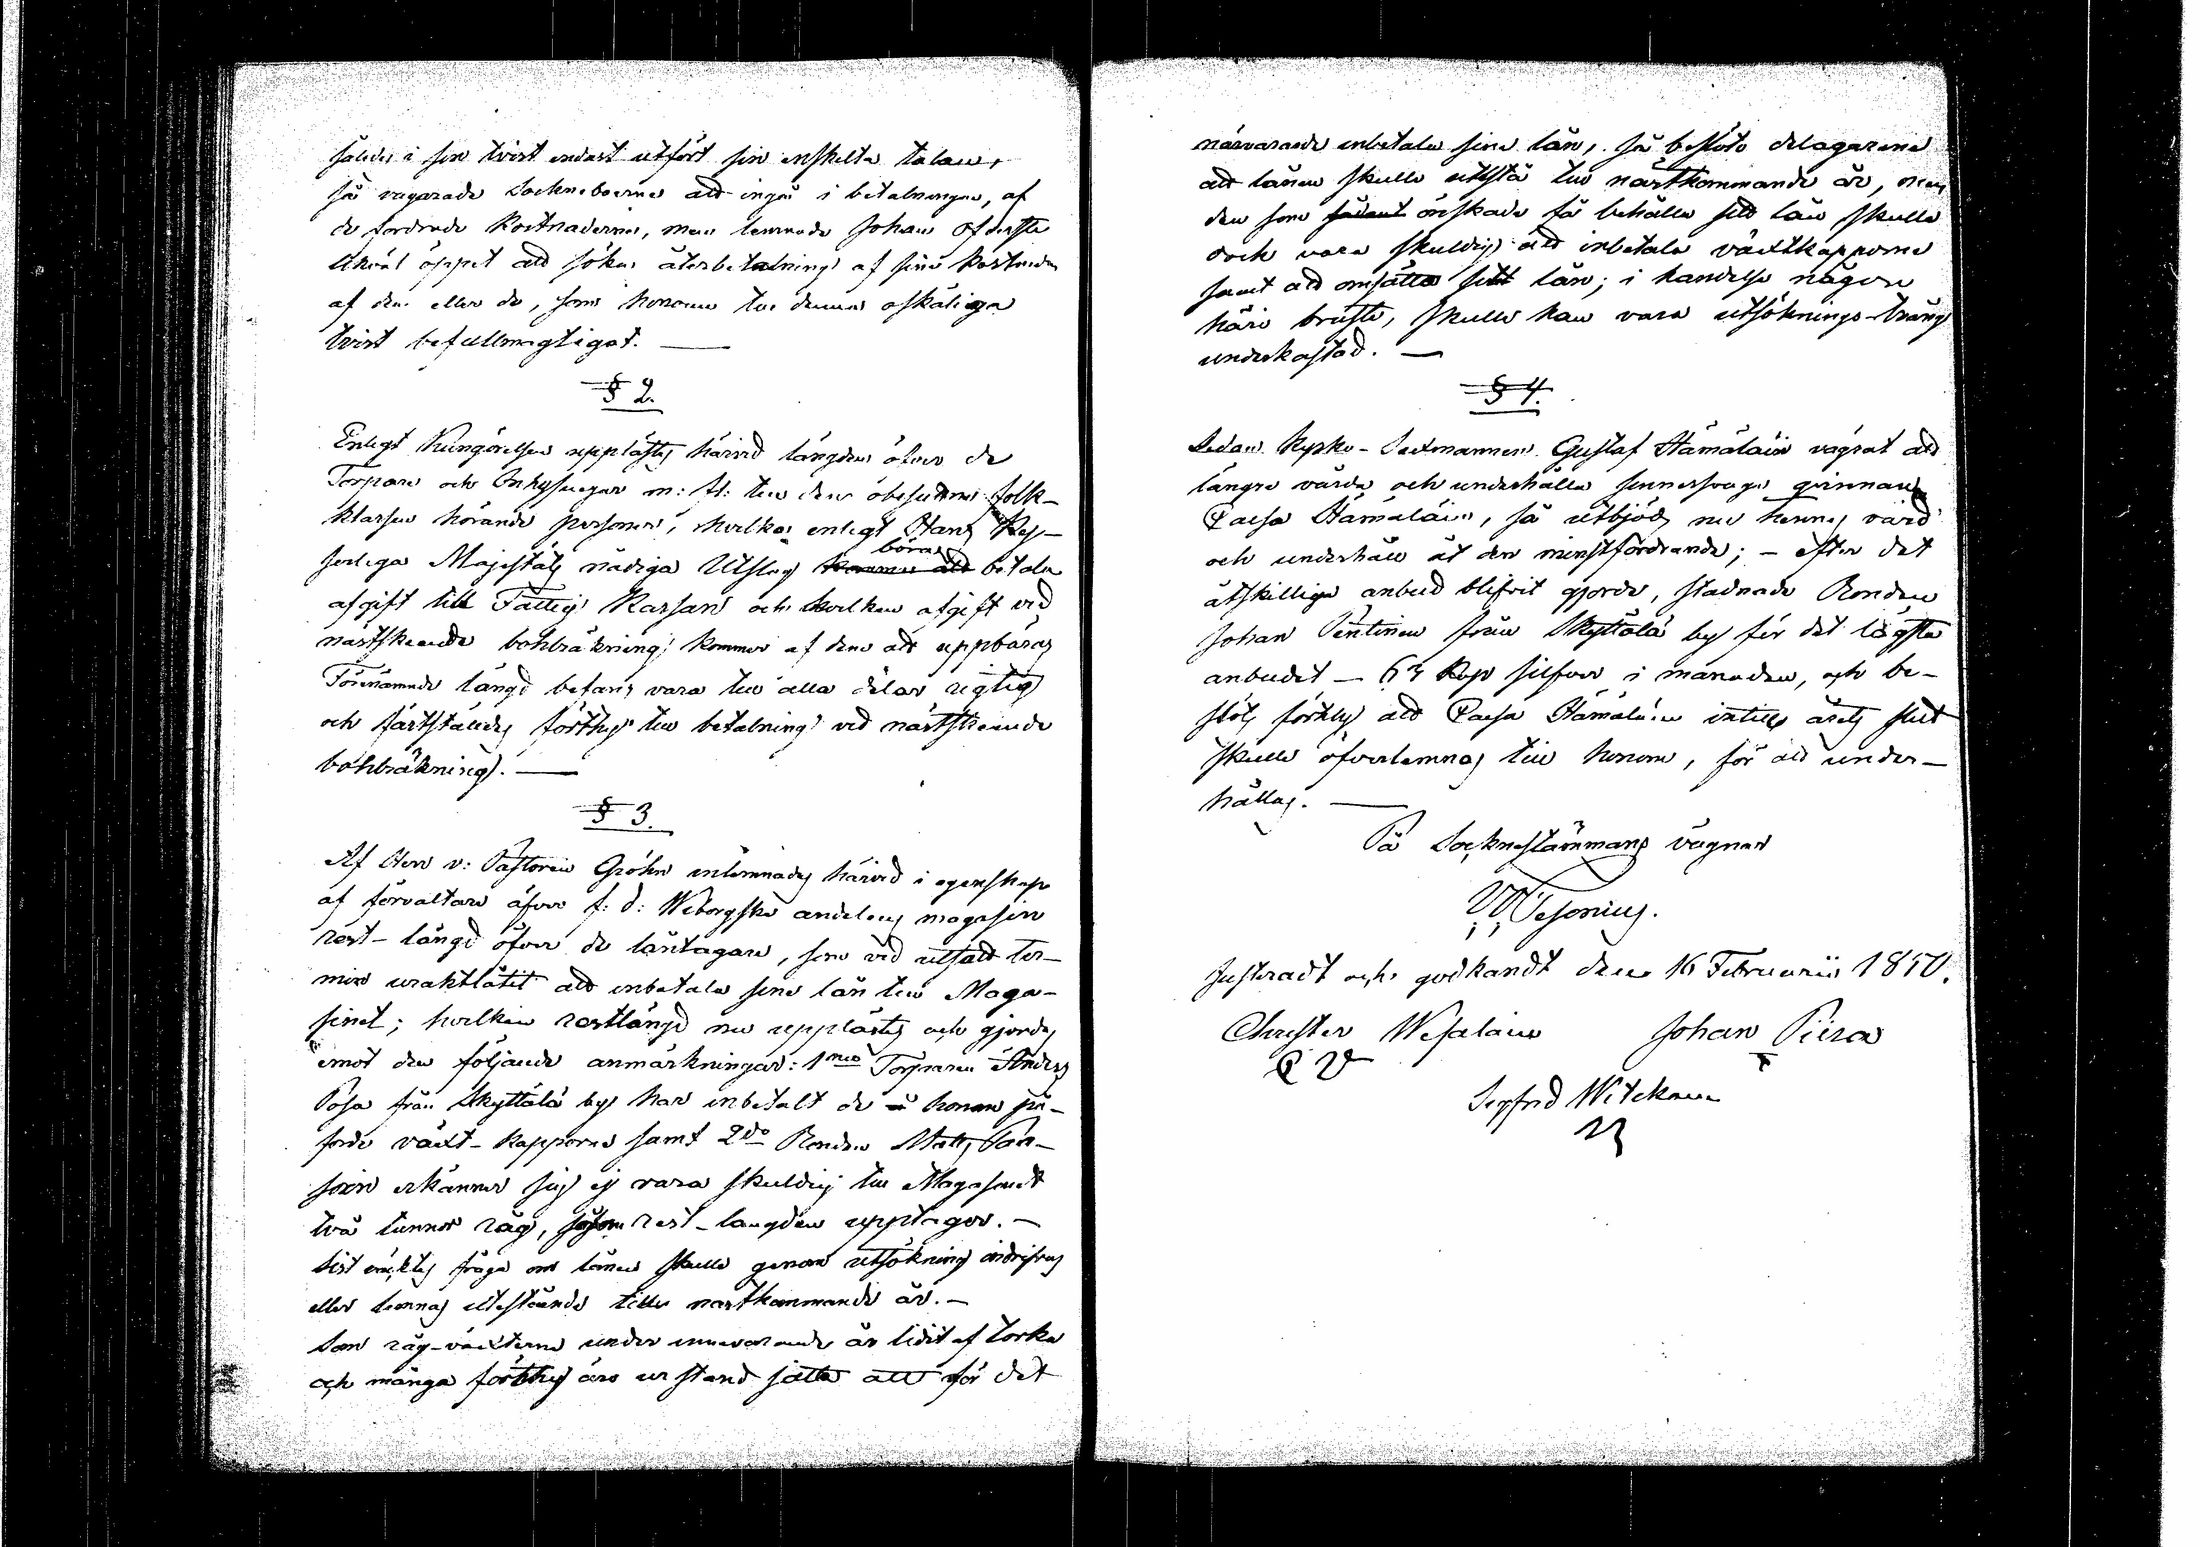 således i sin tvist endast utfört sin enskelta talan,
så vägrade Sockneboerne att ingå i betalningen, af
de fordrade kostnaderne, men lemnade Johan
likväl öppet att söka återbetalning af sine kostnader
af den eller de, som honom till denna oskäliga
tvist befullmägtigat. —
§ 2.
Enligt Kungörelsen upplästes härvid längden öfver de
Torpare och Inhysingar m: fl: till den obesutne folk-
klassen hörande personer, hvilka enligt Hans Kej-
serliga Majestäts nådiga Utslag böra betala
afgift till Fattig Kassan och hvilken afgift vid
nästskeende bohkräkning kommer af dem att uppbäras
Förenämnde längd befans vara till alla delar rigtig
och fastställdes förthy till betalning vid nästskeende
bohkräkning. —
§ 3.
Af Herr v: Pastoren Gröhn inlemnades härvid i egenskap
af förvaltare öfver f: d: Wiborgska andelens magasin
rest-längd öfver de låntagare, som vid utsatt ter-
min uraktlåtit att inbetala sine lån till Maga-
sinet; hvilken restlängd nu upplästes och gjordes
emot den följande anmärkningar: 1mo Torparen Anders
Posa från Skyttälä by har inbetalt de å honom på-
förde växt-kapporne samt 2do Bonden Matts Pan-
soin erkänner sig ej vara skuldig till Magasinet
två tunnor råg, såsom rest-längden upptager. —
Sist väcktes fråga om lånen skulle genom utsökning indrifvas
eller lemnas utestående tills nästkommande år. —
Som råg-växterne under innevarande år lidit af torka
och många förthy äro ur stånd satte att för det
närvarande inbetala sine lån, så beslöto delägarene
att lånen skulle utestå till nästkommande år, men
den som önskade få behålla sitt lån skulle
dock vara skuldig att inbetala växtkapporne
samt att omsätta sitt lån; i händelse någon
häri bruste, skulle han vara utsöknings-tvång
underkastad. —
§ 4.
Sedan Kyrko-Sexmannen Gustaf Hämäläin vägrat att
längre vårda och underhålla sinnessvaga qvinnan
Paesa Hämäläin, så utbjöds nu hennes vård
och underhåll åt den minstfordrande; — efter det
åtskilliga anbud blifvit gjorde, stadnade Bonden
Johan Pentinen från Skyttälä by för det lägsta
anbudet — 63 Kop silfver i månaden, och be-
slöts förthy att Paesa Hämäläin intill årets slut
skulle öfverlemnas till honom, för att under-
hållas. —
På Socknestämmans vägnar
W: Tesonius.
Justeradt och godkändt den 16 Februarii 1850.
Christer Wesalain Johan Piira
Sigfrid Witckain